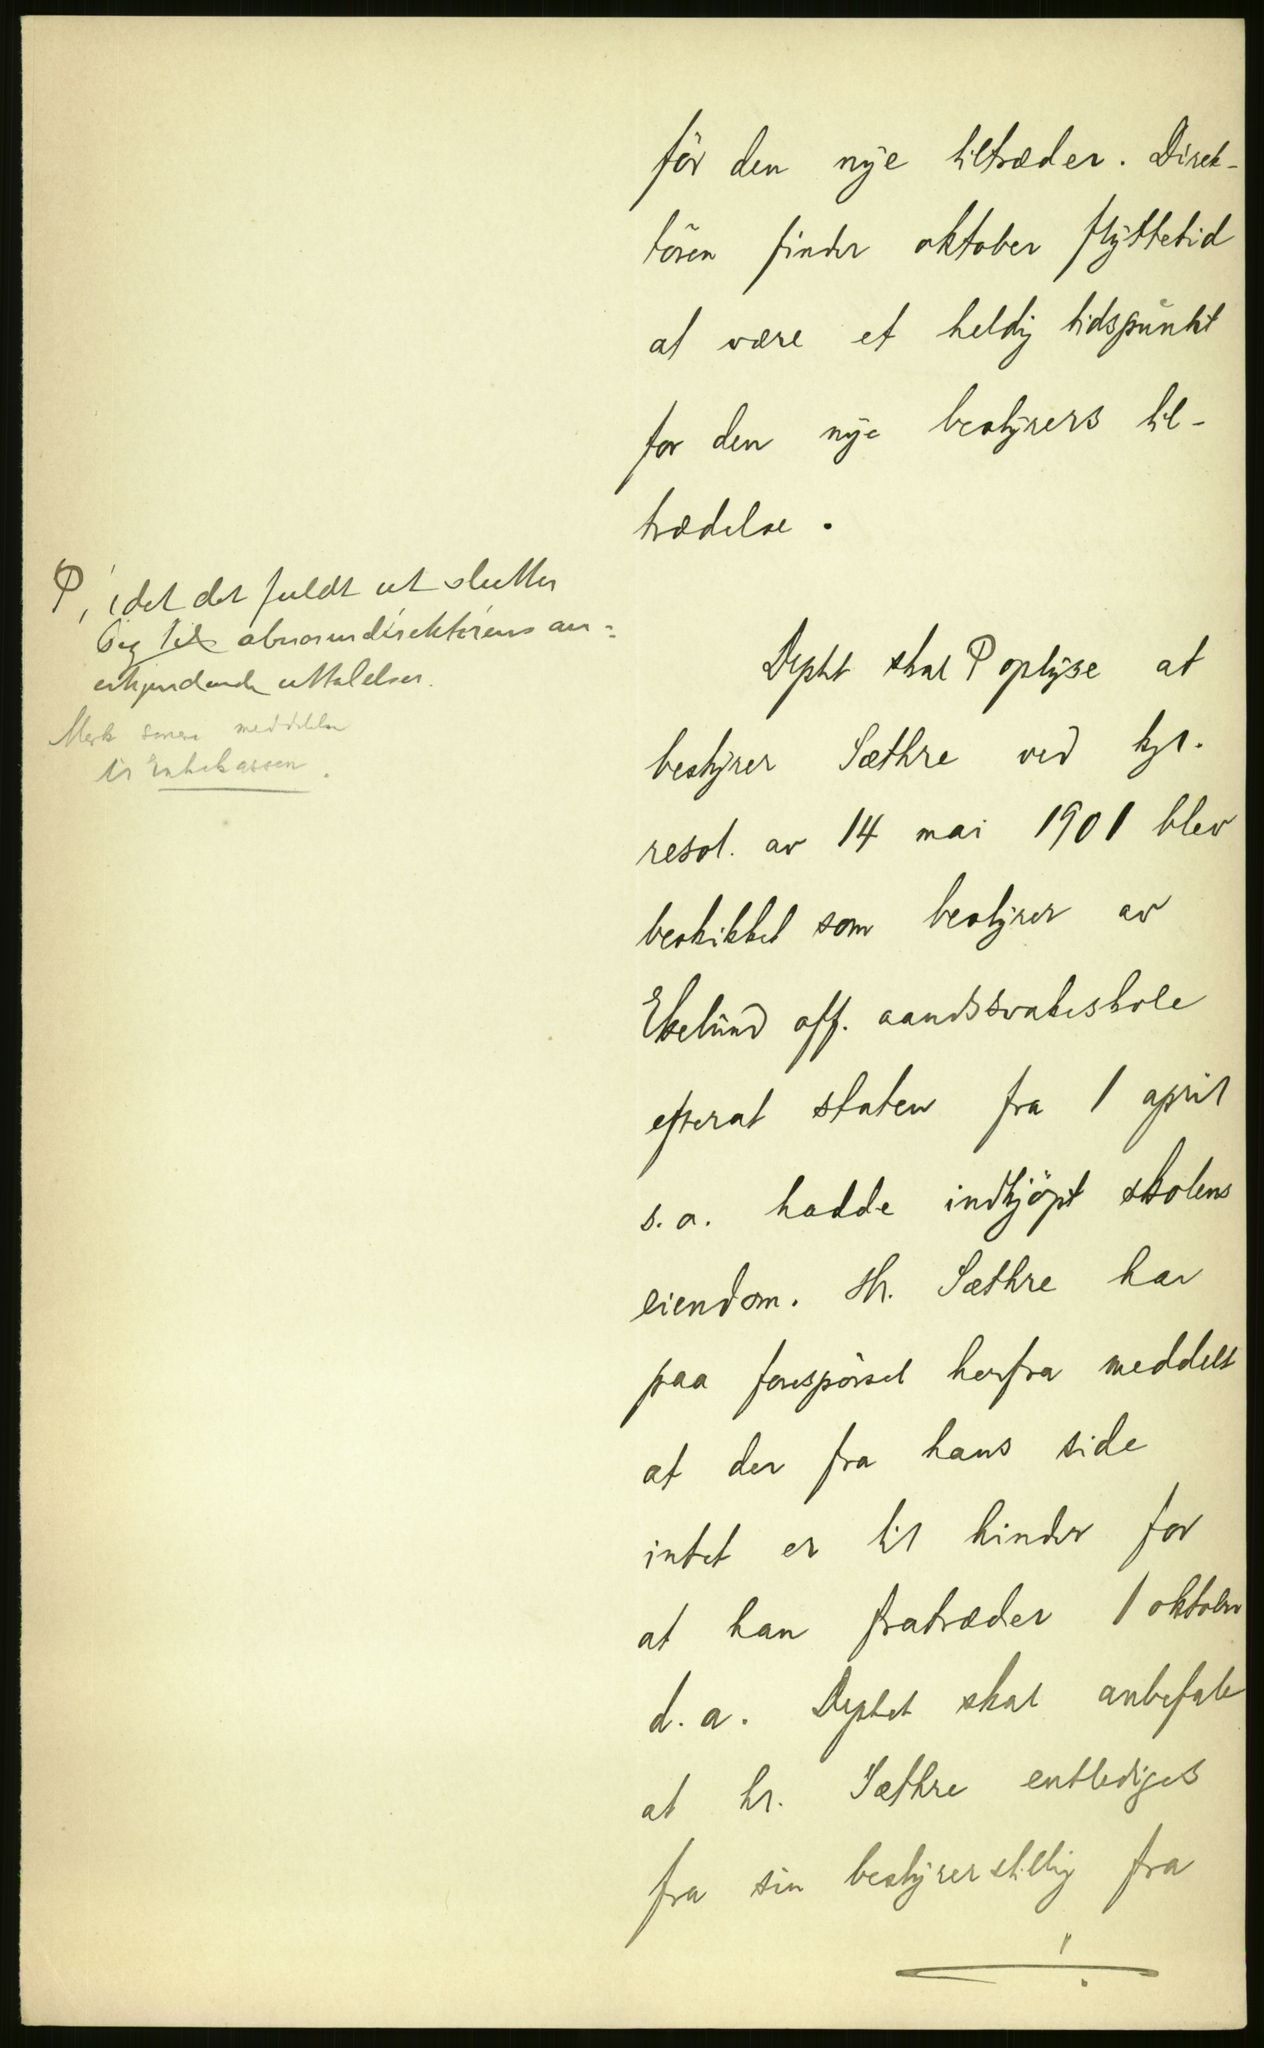 för den nye tiltræder. Direk-
tören finder oktober flyttetid
at være et heldig tidspunkt
for den nye bestyrers til-
trædelse.
P, idet det fuldt ut slutter
sig til abnormdirektörens an-
erkjendende uttalelser.
Merk senere meddelelse
til Enkekassen.
Depht skal P oplyse at
bestyrer Sæthre ved kgl.
resol. av 14 mai 1901 blev
beskikket som bestyrer av
Ekelund off. aandssvakeskole
efterat staten fra 1 april
s. a. hadde indkjöpt skolens
eiendom. Hr. Sæthre har
paa forespörsel herfra meddelt
at der fra hans side
intet er til hinder for
at han fratræder 1 oktober
d. a. Deptet skal anbefale
at hr. Sæthre entlediges
fra sin bestyrerstillig fra